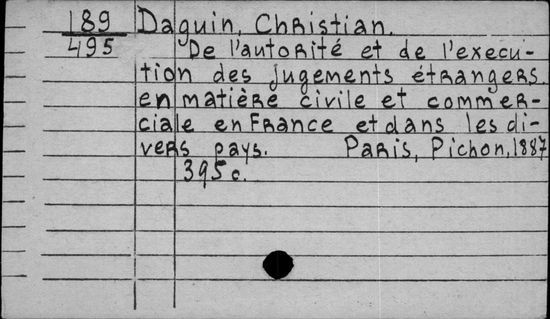 189
495
Daguin, Christian.
De l'autorité et de l'execu-
tion des jugements étrangers
en matière civile et commer-
ciale en France et dans les di-
vers pays. Paris, Pichon, 1887
395 c.